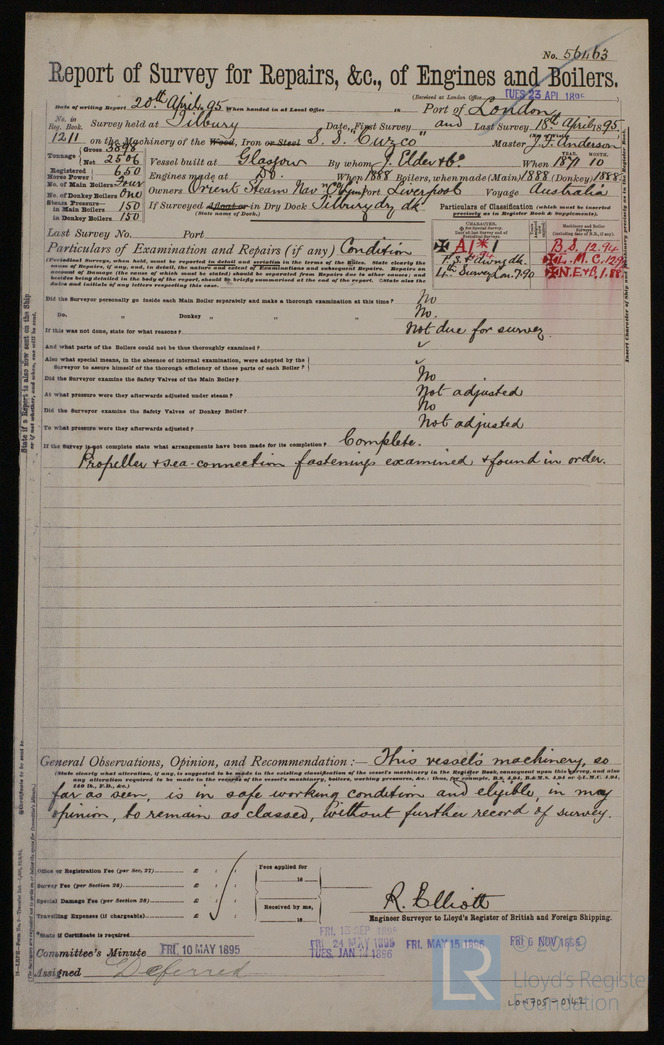 No. 56463
Report of Survey for Repairs, &c., of Engines and Boilers.
(Received at London Office TUES 23 APL 1895)
Date of writing Report 20th April 95 When handed in at Local Office 18 Port of London
No. in Reg. Book. Survey held at Tilbury Date, First Survey and Last Survey 18th April 1895
1211 on the Machinery of the Wood, Iron or Steel S.S. Cuzco Master J.F. Anderson
Tonnage Gross 3898 Net 2506 Vessel built at Glasgow By whom J. Elder & Co. When YEAR. 1871 MONTH. 10
Registered Horse Power 650 Engines made at Do. When 1888 Boilers, when made (Main) 1888 (Donkey) 1888
No. of Main Boilers Four
No. of Donkey Boilers One Owners Orient Steam Nav. Co. Port Liverpool Voyage Australia
Steam Pressure in Main Boilers 150 If Surveyed Afloat or in Dry Dock Tilbury dry dk
in Donkey Boilers 150 (State name of Dock.)
Particulars of Classification (which must be inserted precisely as in Register Book & Supplements).
Last Survey No. Port
Particulars of Examination and Repairs (if any) Condition
(Periodical Surveys, when held, must be reported in detail and seriatim in the terms of the Rules. State clearly the cause of Repairs, if any, and, in detail, the nature and extent of Examinations and subsequent Repairs. Repairs on account of Damage (the cause of which must be stated) should be separated from Repairs due to other causes; and besides being detailed in the body of the report, should be briefly summarised at the end of the report. State also the dates and initials of any letters respecting this case.
A1* 1
B.S. 12.94
L.M.C. 12.94
4th Survey Lon. 7.90 N.E.&B. 1.88
Did the Surveyor personally go inside each Main Boiler separately and make a thorough examination at this time? No
Do. " Donkey " " " No.
If this was not done, state for what reasons? Not due for survey
And what parts of the Boilers could not be thus thoroughly examined? ✓
Also what special means, in the absence of internal examination, were adopted by the Surveyor to assure himself of the thorough efficiency of those parts of each Boiler? ✓
Did the Surveyor examine the Safety Valves of the Main Boiler? No
At what pressure were they afterwards adjusted under steam? Not adjusted
Did the Surveyor examine the Safety Valves of Donkey Boiler? No
To what pressure were they afterwards adjusted? Not adjusted
If the Survey is not complete state what arrangements have been made for its completion? Complete.
Propeller & sea-connection fastenings examined & found in order.
General Observations, Opinion, and Recommendation:— This vessel's machinery, so
(State clearly what alteration, if any, is suggested to be made in the existing classification of the vessel's machinery in the Register Book, consequent upon this survey, and also any alteration required to be made in the records of the vessel's machinery, boilers, working pressures, &c.: thus, for example, B.S. 4.94, B.&M.S. 4.94 or L.M.C. 4.94, 140 lb., F.D., &c.)
far as seen, is in safe working condition and eligible, in my
opinion, to remain as classed, without further record of survey.
Office or Registration Fee (per Sec. 27) £
Survey Fee (per Section 28) £
Special Damage Fee (per Section 28) £
Travelling Expenses (if chargeable) £
Fees applied for 18
Received by me, 18
R. Elliott
Engineer Surveyor to Lloyd's Register of British and Foreign Shipping.
*State if Certificate is required
FRI. 13 SEP 1895
Committee's Minute FRI. 10 MAY 1895 FRI. 24 MAY 1895 FRI. MAY 15 1896 FRI 6 NOV 1896
TUES. JAN 1896
Assigned Deferred
© 2019
LR Lloyd's Register Foundation
LON705-0142